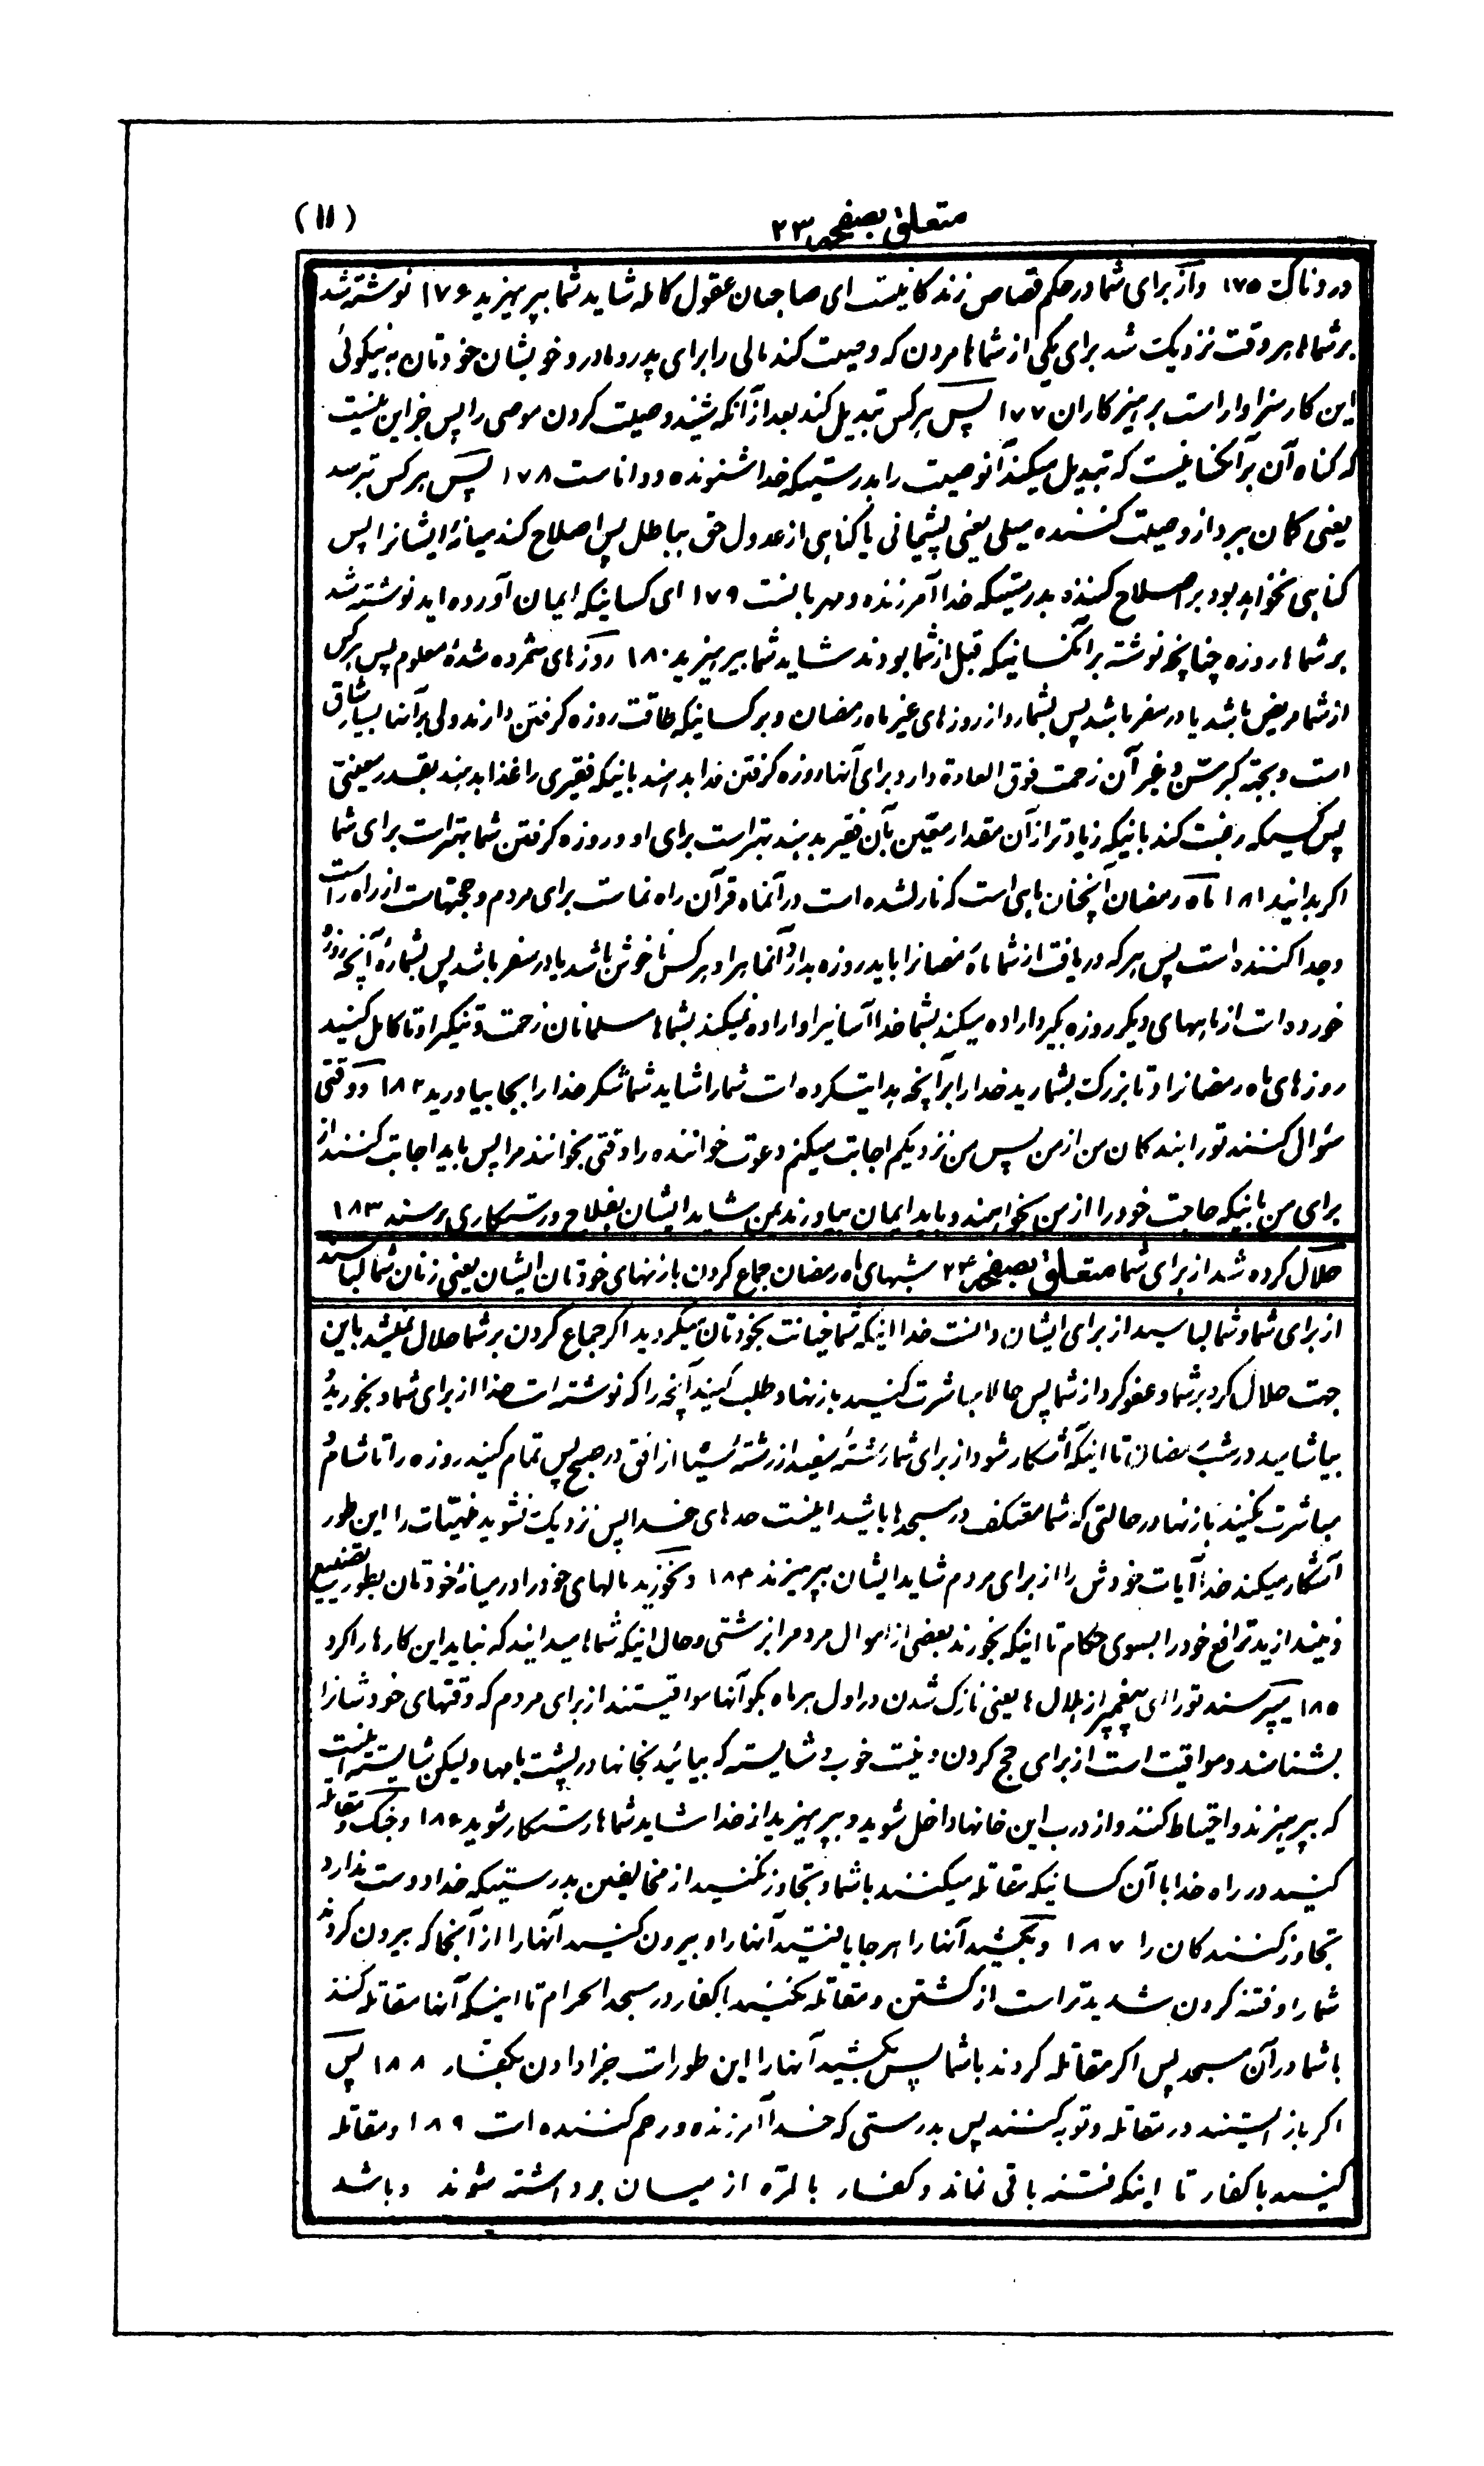 متعلق بصفحه ۲۳
(۱۱)
دردناک ۱۷۵ و از برای شما در حکم قصاص زندکانیست ای صاحبان عقول کامله شاید شما بپرهیزید ۱۷۶ نوشته شد
بر شما هر وقت نزدیک شد برای یکی از شما ها مردن که وصیت کند مالی را برای پدر و مادر و خویشان خودتان به نیکوئی
این کار سزاوار است بر پرهیزکاران ۱۷۷ پس هر کس تبدیل کند بعد از آنکه شنید وصیت کردن موصی را پس جز این نیست
که کناه آن بر آنکسانیست که تبدیل میکند آنوصیت را بدرستیکه خدا شنونده و داناست ۱۷۸ پس هر کس بترسد
یعنی کمان ببرد از وصیت کننده میلی یعنی پشیمانی یا کناهی از عدول حق بباطل پس اصلاح کند میانهٔ ایشانرا پس
کناهی نخواهد بود بر اصلاح کننده بدرستیکه خدا آمرزنده و مهربانست ۱۷۹ ای کسانیکه ایمان آورده اید نوشته شد
بر شما ها روزه چنانچه نوشته بر آنکسانیکه قبل از شما بودند شاید شما بپرهیزید ۱۸۰ روزهای شمرده شدهٔ معلوم پس هر کس
از شما مریض باشد یا در سفر باشد پس بشمارد از روزهای غیر ماه رمضان و بر کسانیکه طاقت روزه کرفتن دارند ولی بر آنها بسیار شاق
است و بجهة کبر سن و غیر آن زحمت فوق العاده دارد برای آنها روزه کرفتن فدا بدهند باینکه فقیری را غذا بدهند بقدر معینی
پس کسیکه رغبت کند باینکه زیادتر از آن مقدار معین بآن فقیر بدهند بهتر است برای او و روزه کرفتن شما بهتر است برای شما
اکر بدانید ۱۸۱ ماه رمضان آنچنان ماهی است که نازلشده است در آنماه قرآن راه نماست برای مردم و حجتهاست از راه راست
و جدا کننده است پس هر که دریافت از شما ماه رمضانرا باید روزه بدارد آنماهرا و هر کس ناخوش باشد یا در سفر باشد پس بشمارهٔ آنچه روزه
خورده است از ماههای دیکر روزه بکیرد اراده میکند بشما خدا آسانیرا و اراده نمیکند بشماها مسلمانان زحمت و تنکیرا و تا کامل کنید
روزهای ماه رمضانرا و تا بزرک بشمارید خدا را بر آنچه هدایت کرده است شما را شاید شما شکر خدا را بجا بیاورید ۱۸۲ و وقتی
سؤال کنند تو را بندکان من از من پس من نزدیکم اجابت میکنم دعوت خواننده را وقتی بخوانند مرا پس باید اجابت کنند از
برای من باینکه حاجت خود را از من بخواهند و باید ایمان بیاورند بمن شاید ایشان بفلاح و رستکاری برسند ۱۸۳
حلال کرده شد از برای شما متعلق بصفحه ۲۴ شبهای ماه رمضان جماع کردن بازنهای خودتان ایشان یعنی زنان شما لباسند
از برای شما و شما لباسید از برای ایشان دانست خدا اینکه شما خیانت بخودتان میکردید اکر جماع کردن بر شما حلال نمیشد باین
جهت حلال کرد بر شما و عفو کرد از شما پس حالا مباشرت کنید بازنها و طلب کنید آنچه را که نوشته است خدا از برای شما و بخورید و
بیاشامید در شب رمضان تا اینکه آشکار شود از برای شما رشتهٔ سفید از رشتهٔ سیاه از افق در صبح پس تمام کنید روزه را تا شام و
مباشرت نکنید بازنها در حالتی که شما معتکف در مسجدها باشید اینست حدهای خدا پس نزدیک نشوید منهیّات را این طور
آشکار میکند خدا آیات خودش را از برای مردم شاید ایشان بپرهیزند ۱۸۴ و نخورید مالهای خود را در میانهٔ خودتان بطور تضییع
و نیندازید ترافع خود را بسوی حکام تا اینکه بخورند بعضی از اموال مردمرا بزشتی و حال اینکه شماها میدانید که نباید این کارها را کرد
۱۸۵ میپرسند تو را ای پیغمبر از هلال ها یعنی نازک شدن در اول هر ماه بکو آنها مواقیتند از برای مردم که وقتهای خودشانرا
بشناسند و مواقیت است از برای حج کردن و نیست خوب و شایسته که بیائید بخانها در پشت بامها ولیکن شایسته اینست
که بپرهیزند و احتیاط کنند و از درب این خانها داخل شوید و بپرهیزید از خدا شاید شماها رستکار شوید ۱۸۶ و جنک و مقاتله
کنید در راه خدا با آن کسانیکه مقاتله میکنند با شما و تجاوز نکنید از مخالفین بدرستیکه خدا دوست ندارد
تجاوز کنندکان را ۱۸۷ و بکشید آنها را هر جا یافتید آنها را و بیرون کنید آنها را از آنجا که بیرون کردند
شما را و فتنه کردن شدیدتر است از کشتن و مقاتله نکنید با کفار در مسجد الحرام تا اینکه آنها مقاتله کنند
با شما در آن مسجد پس اکر مقاتله کردند با شما پس بکشید آنها را این طور است جزا دادن بکفار ۱۸۸ پس
اکر باز ایستند در مقاتله و توبه کنند پس بدرستی که خدا آمرزنده و رحم کننده است ۱۸۹ و مقاتله
کنید با کفار تا اینکه فتنه باقی نماند و کفار بالمرّه از میان برداشته شوند و باشد